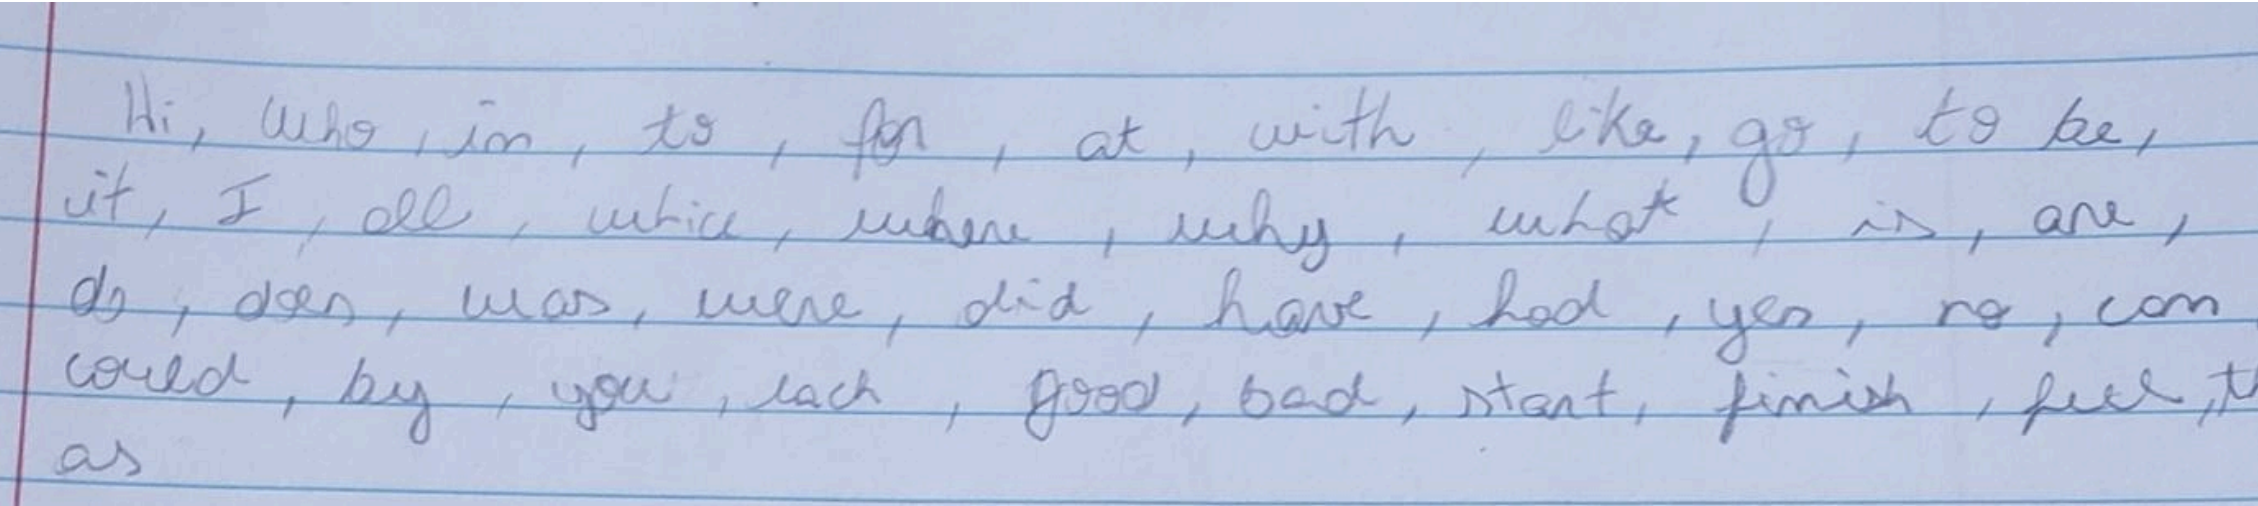 Hi, who, in, to, for, at, with, like, go, to be,
it, I, all, whice, where, why, what, is, are,
do, does, was, were, did, have, had, yes, no, can
could, by, you, each, good, bad, start, finish, feel,
as